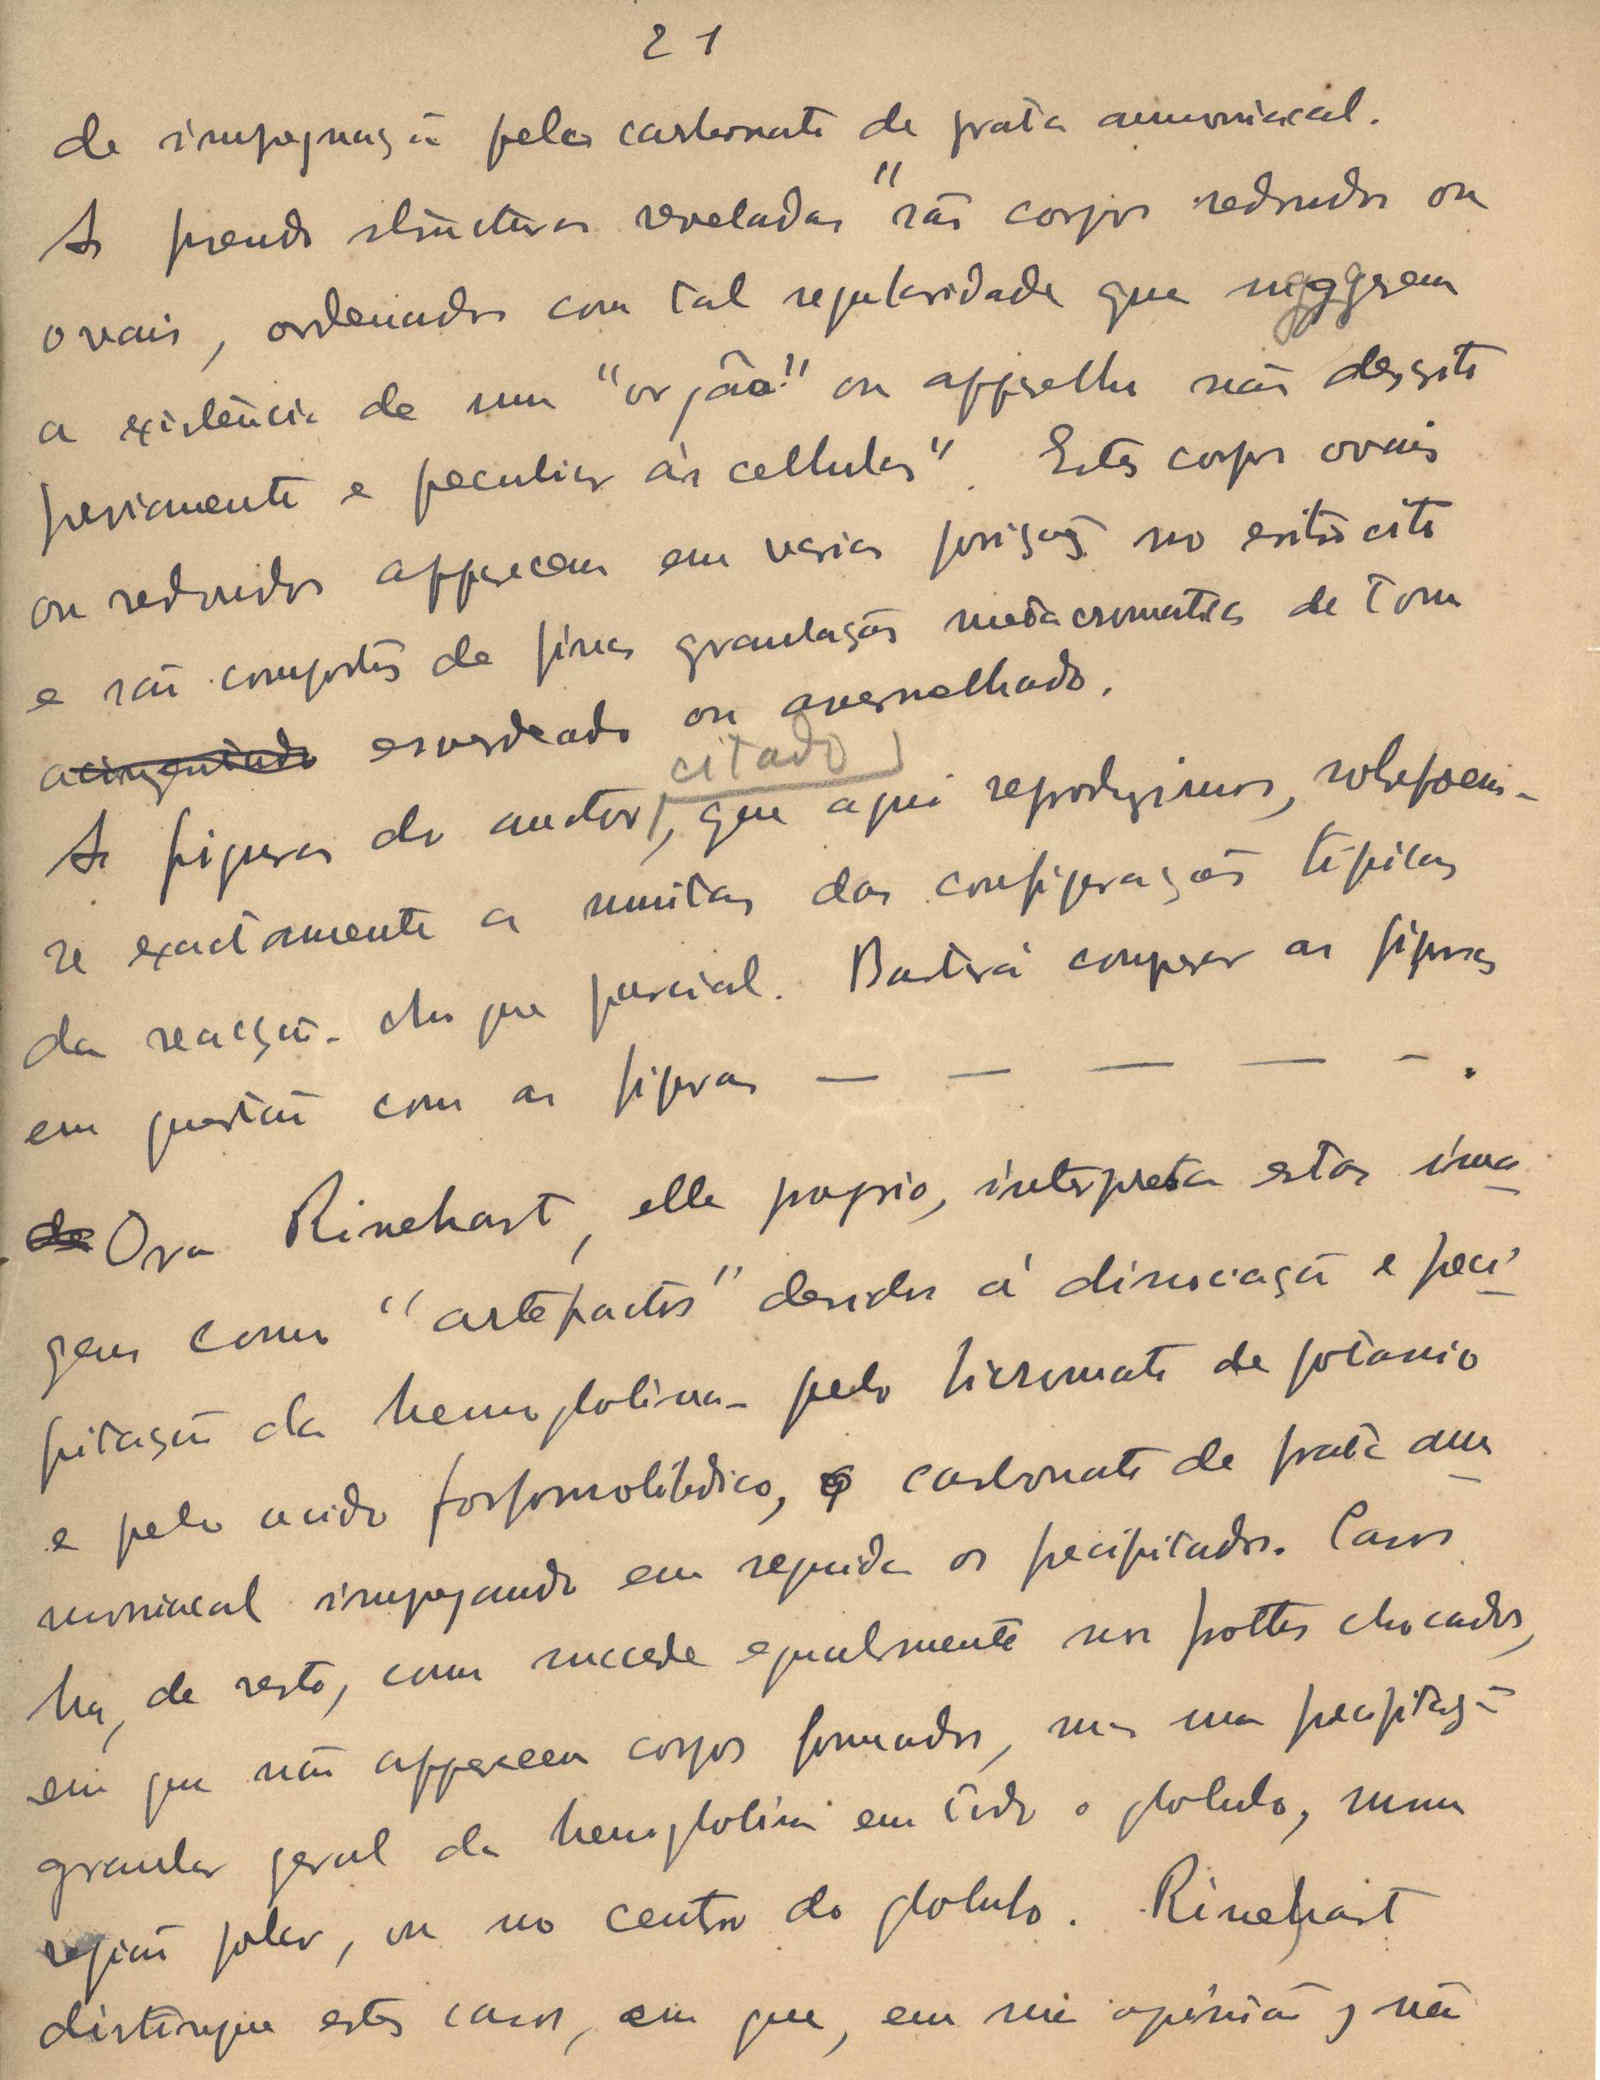 21
de impregnação pelo carbonato de prata ammoniacal.
As pseudo structuras reveladas "são corpos redondos ou
ovais, ordenados com tal regularidade que suggerem
a existência de um "orgão" ou apparelho não descrito
previamente e peculiar às cellulas". Estes corpos ovais
ou redondos apparecem em varias posições no eritrocito
e são compostos de finas granulações metacromaticas de tom
acinzentado esverdeado ou avermelhado.
As figuras do auctor citado, que aqui reproduzimos, sobrepoem-
se exactamente a muitas das configurações tipicas
da reacção-choque parcial. Bastará comparar as figuras
em questão com as figuras — — — — — .
de Ora Rinehart, elle proprio, interpreta estas ima
gens como "artefactos" devidos á dissociação e preci
pitação da hemoglobina pelo bicromato de potassio
e pelo acido fosfomolibdico, o carbonato de prata am
moniacal impregnando em seguida os precipitados. Casos
ha, de resto, como succede egualmente nos frottis chocados,
em que não apparecem corpos formados, mas uma precipitação
granular geral da hemoglobina em todo o globulo, numa
região polar, ou no centro do globulo. Rinehart
distingue estes casos, em que, em sua opinião, não